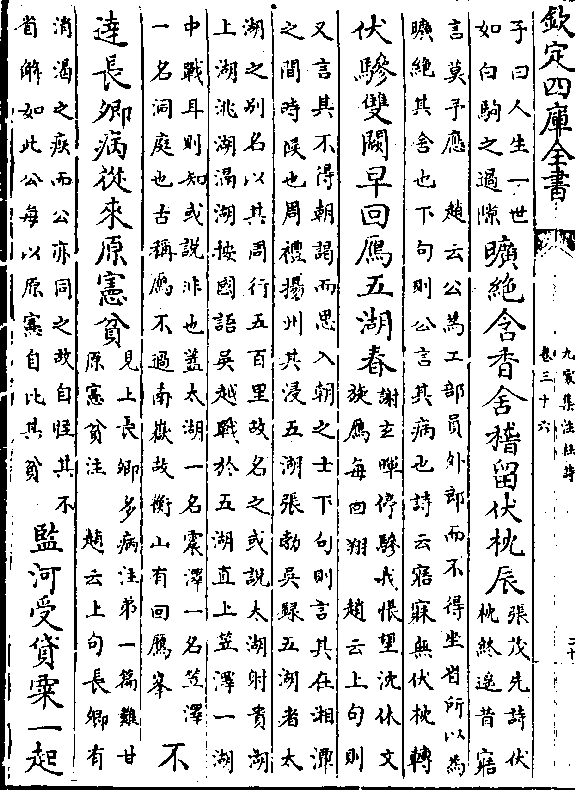 欽定四庫全書
九家集注杜詩
卷三十六
二十
子曰人生一世
如白駒之過隙
曠絶含香舍稽留伏枕辰
張茂先詩伏
枕終遥昔寤
言莫予應　趙云公為工部員外郎而不得坐省所以為
曠絶其舍也下句則公言其病也詩云寤寐無伏枕轉
伏驂雙闕早回鴈五湖春
謝玄暉停驂我悵望沈休文
旋鴈每回翔　趙云上句則
又言其不得朝謁而思入朝之士下句則言其在湘潭
之間時候也周禮揚州其浸五湖張勃吳録五湖者太
湖之别名以其周行五百里故名之或説太湖射貴湖
上湖洮湖滆湖按國語吳越戰於五湖直上笠澤一湖
中戰耳則知或説非也蓋太湖一名震澤一名笠澤
一名洞庭也古稱鴈不過南嶽故衡山有回鴈峯
不
達長卿病從來原憲貧
見上長卿多病注弟一篇難甘
原憲貧注　趙云上句長卿有
消渴之疾而公亦同之故自怪其不
省解如此公每以原憲自比其貧
監河受貸粟一起